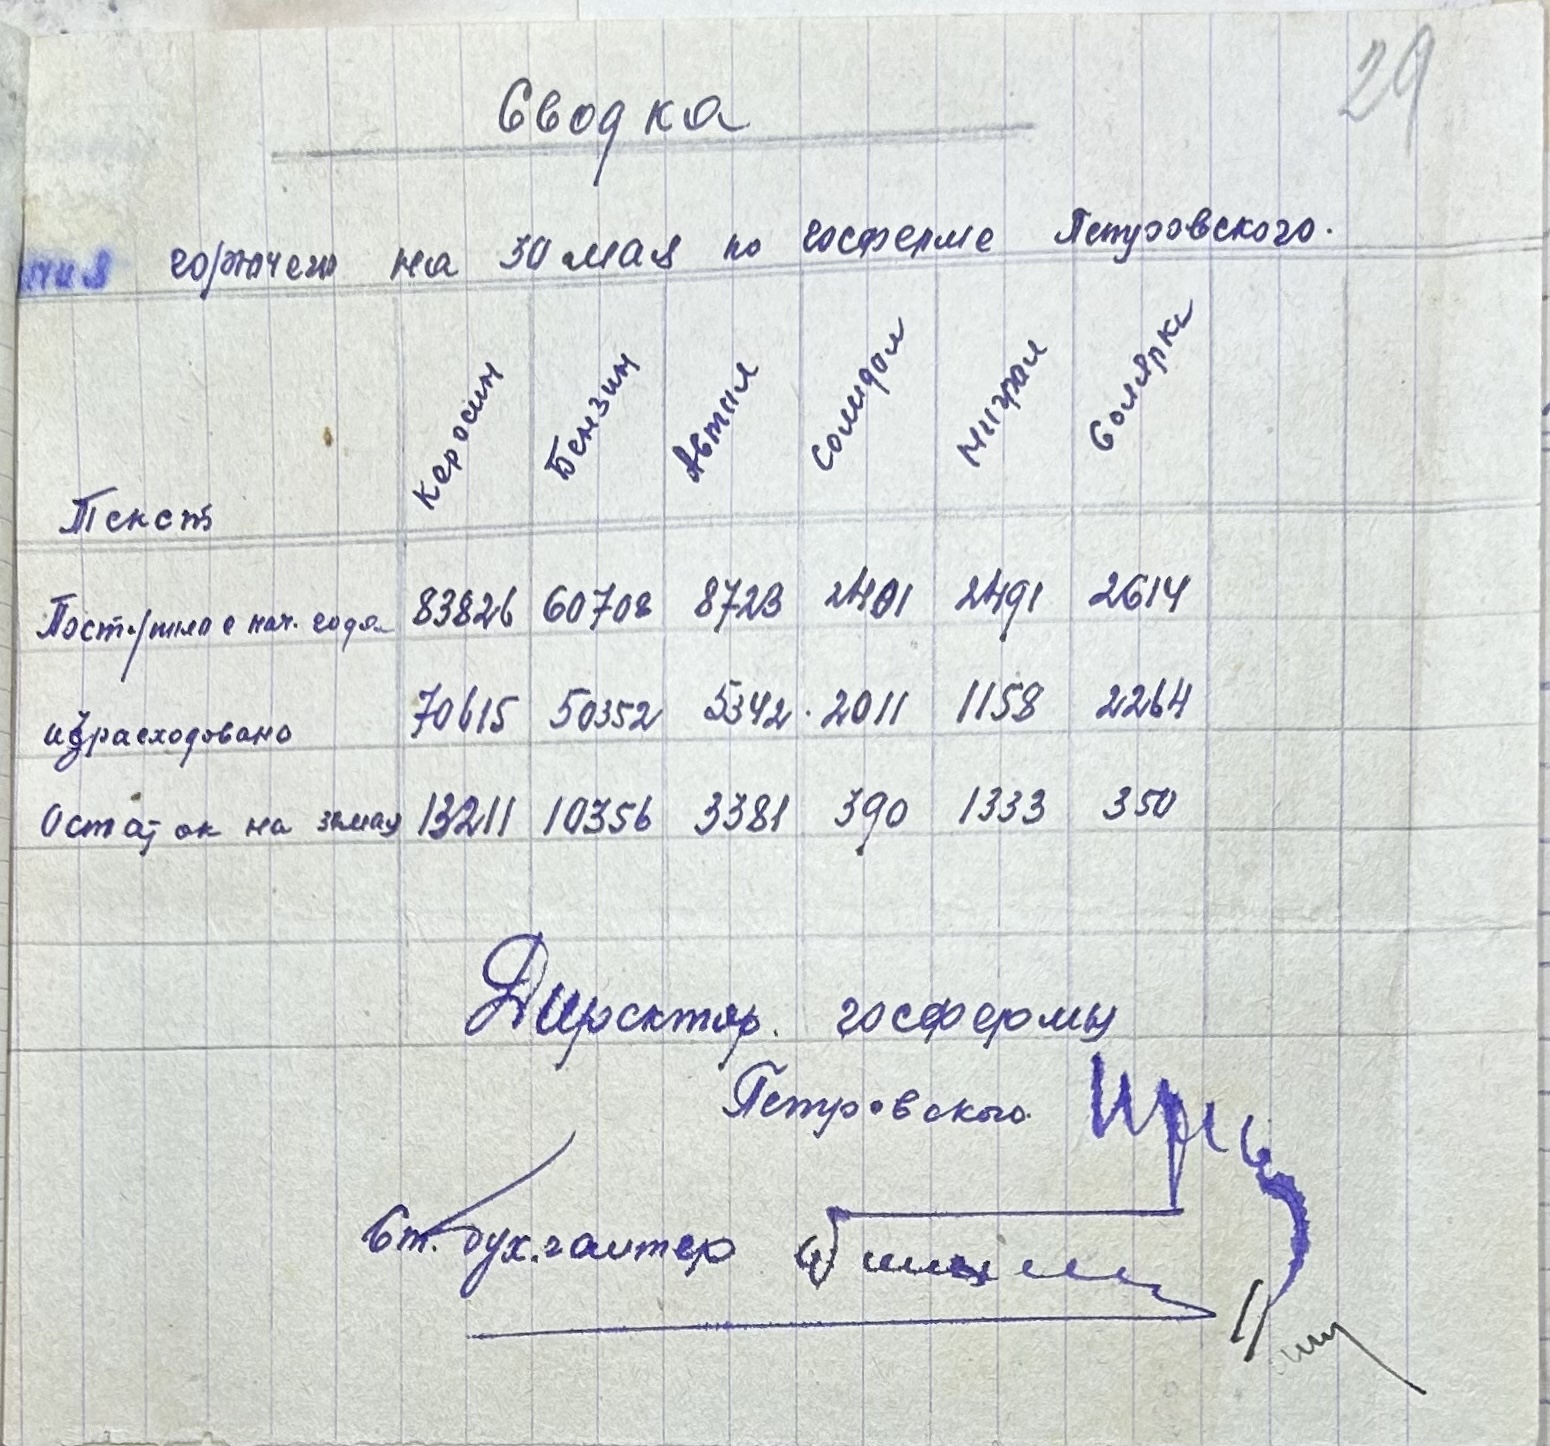 29
Сводка
ния горючего на 30 мая по госферме Петровского.
Текст Керосин Бензин Автол Солидол Нигрол Солярка
Поступило с нач. года 83826 60708 8723 2401 2491 2614
израсходовано 70615 50352 5342 2011 1158 2264
Остаток на 30 мая 13211 10356 3381 390 1333 350
Директор госфермы
Петровского
Ст. бухгалтер